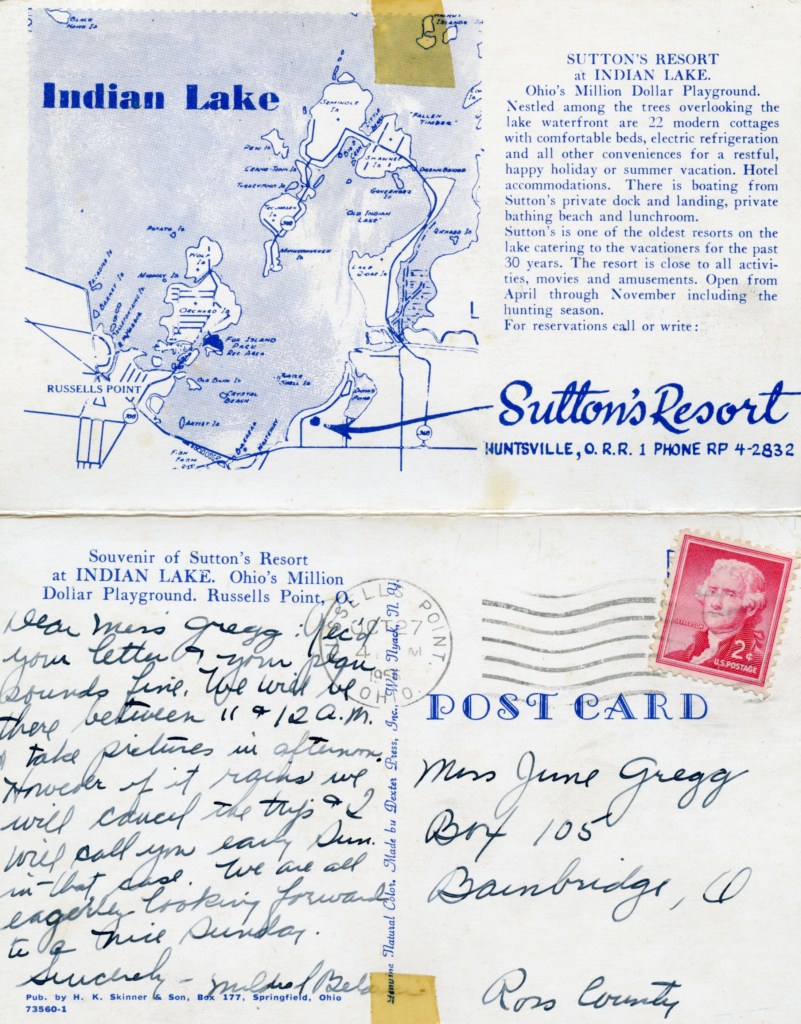 Indian Lake
SEMINOLE
IS.
"FALLEN
TIMBER"
PEW IS.
SHAWNEE
IS.
GOVERNORS
IS.
"OLD INDIAN
LAKE"
ORCHARD IS.
POTATO IS.
WOLF
IS.
ORCHARD IS.
FOX ISLAND
PARK
REC. AREA
RUSSELLS POINT
OLD BLUE IS.
CRYSTAL
BEACH
ARTIST IS.
FISH
FARM
L
SUTTON'S RESORT
at INDIAN LAKE.
Ohio's Million Dollar Playground.
Nestled among the trees overlooking the
lake waterfront are 22 modern cottages
with comfortable beds, electric refrigeration
and all other conveniences for a restful,
happy holiday or summer vacation. Hotel
accommodations. There is boating from
Sutton's private dock and landing, private
bathing beach and lunchroom.
Sutton's is one of the oldest resorts on the
lake catering to the vacationers for the past
30 years. The resort is close to all activi-
ties, movies and amusements. Open from
April through November including the
hunting season.
For reservations call or write:
Sutton's Resort
HUNTSVILLE, O. R.R. 1 PHONE RP 4-2832
Souvenir of Sutton's Resort
at INDIAN LAKE. Ohio's Million
Dollar Playground. Russells Point, O.
Dear Miss Gregg: Rec'd
your letter & your plan
sounds fine. We will be
there between 11 & 12 A.M.
& take pictures in afternoon.
However if it rains we
will cancel the trip & I
will call you early Sun.
in that case. We are all
eagerly looking forward
to a nice Sunday.
Sincerely - Mildred
Pub. by H. K. Skinner & Son, Box 177, Springfield, Ohio
73560-1
Genuine Natural Color. Made by Dexter Press, Inc., West Nyack, N. Y.
RUSSELLS POINT,
OCT 27
4 PM
OHIO.
JEFFERSON
2¢
U.S. POSTAGE
POST CARD
Miss June Gregg
Box 105
Bainbridge, O
Ross County